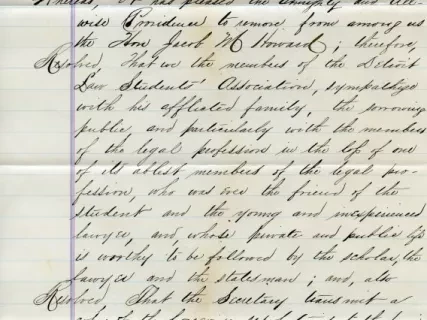 Whereas, It has pleased the Almighty and All-
wise Providence to remove from among us
the Hon Jacob M Howard; therefore,
Resolved, That we the members of the Detroit
Law Students Association, sympathize
with his afflicted family, the sorrowing
public, and particularly with the members
of the legal profession in the loss of one
of its ablest members of the legal pro-
fession, who was ever the friend of the
student and the young and inexperienced
lawyer, and, whose private and public life
is worthy to be followed by the scholar, the
lawyer and the statesman; and, also
Resolved, That the Secretary transmit a